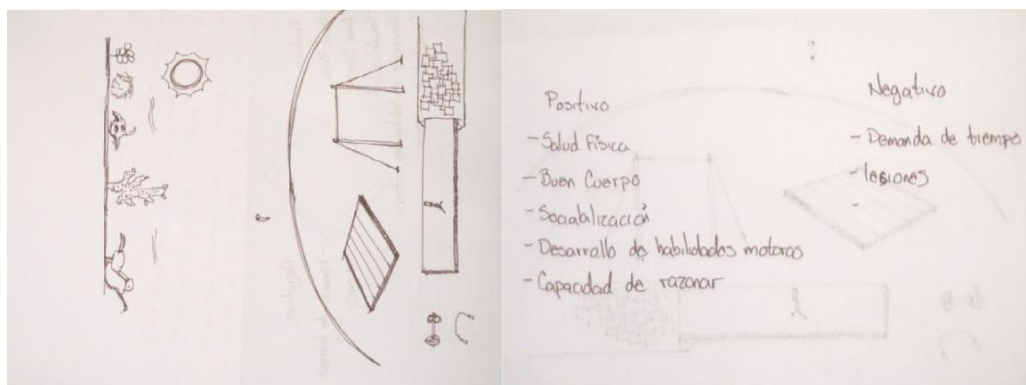 Positivo
- Salud Física
- Buen Cuerpo
- Sociabilización
- Desarrollo de habilidades motoras
- Capacidad de razonar
Negativo
- Demanda de tiempo
- lesiones